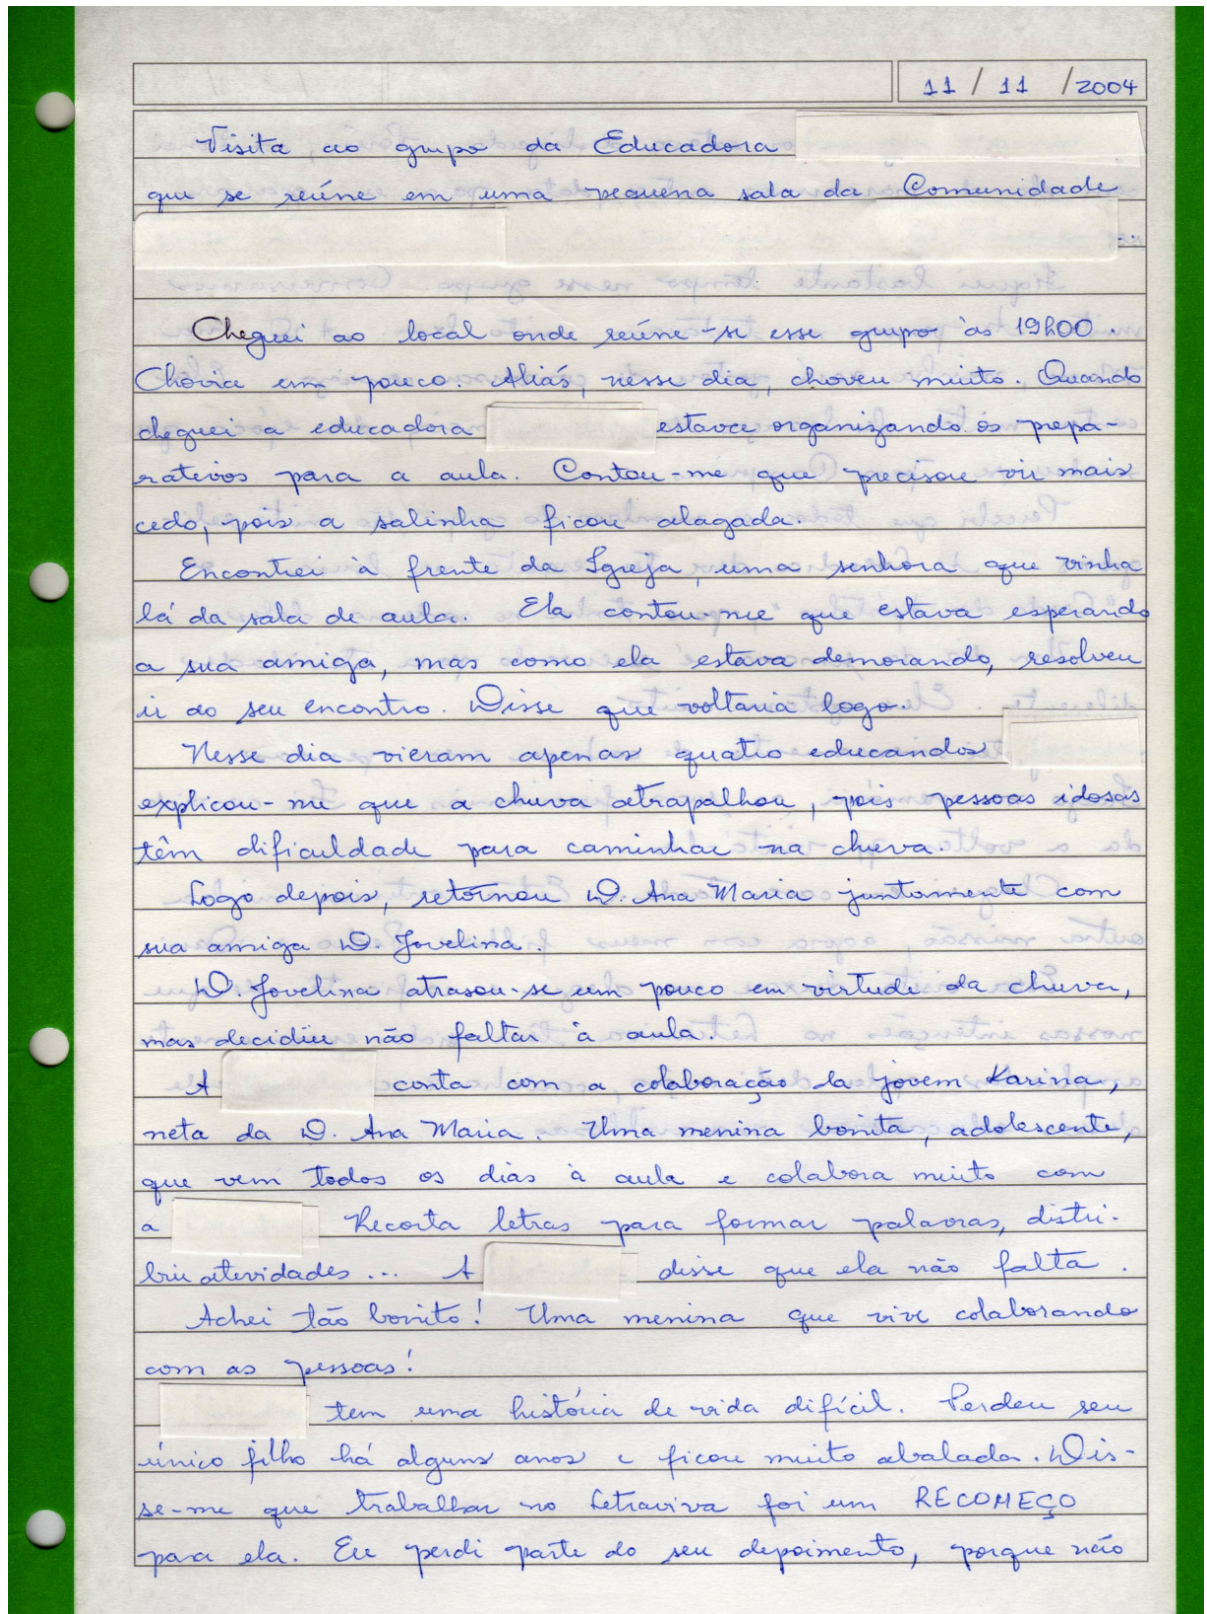 11 / 11 / 2004
Visita ao grupo da Educadora
que se reúne em uma pequena sala da Comunidade
Cheguei ao local onde reúne-se esse grupo às 19h00.
Chovia um pouco. Aliás, nesse dia, choveu muito. Quando
cheguei a educadora estava organizando os prepa-
rativos para a aula. Contou-me que precisou vir mais
cedo, pois a salinha ficou alagada.
Encontrei à frente da Igreja, uma senhora que vinha
lá da sala de aula. Ela contou-me que estava esperando
a sua amiga, mas como ela estava demorando, resolveu
ir ao seu encontro. Disse que voltaria logo.
Nesse dia vieram apenas quatro educandos
explicou-me que a chuva atrapalhou, pois pessoas idosas
têm dificuldade para caminhar na chuva.
Logo depois, retornou D. Ana Maria juntamente com
sua amiga D. Jovelina.
D. Jovelina atrasou-se um pouco em virtude da chuva,
mas decidiu não faltar à aula.
A conta com a colaboração da jovem Karina,
neta da D. Ana Maria. Uma menina bonita, adolescente,
que vem todos os dias à aula e colabora muito com
a Recorta letras para formar palavras, distri-
bui atividades... A disse que ela não falta.
Achei tão bonito! Uma menina que vive colaborando
com as pessoas!
tem uma história de vida difícil. Perdeu seu
único filho há alguns anos e ficou muito abalada. Dis-
se-me que trabalhar no Letraviva foi um RECOMEÇO
para ela. Eu perdi parte do seu depoimento, porque não